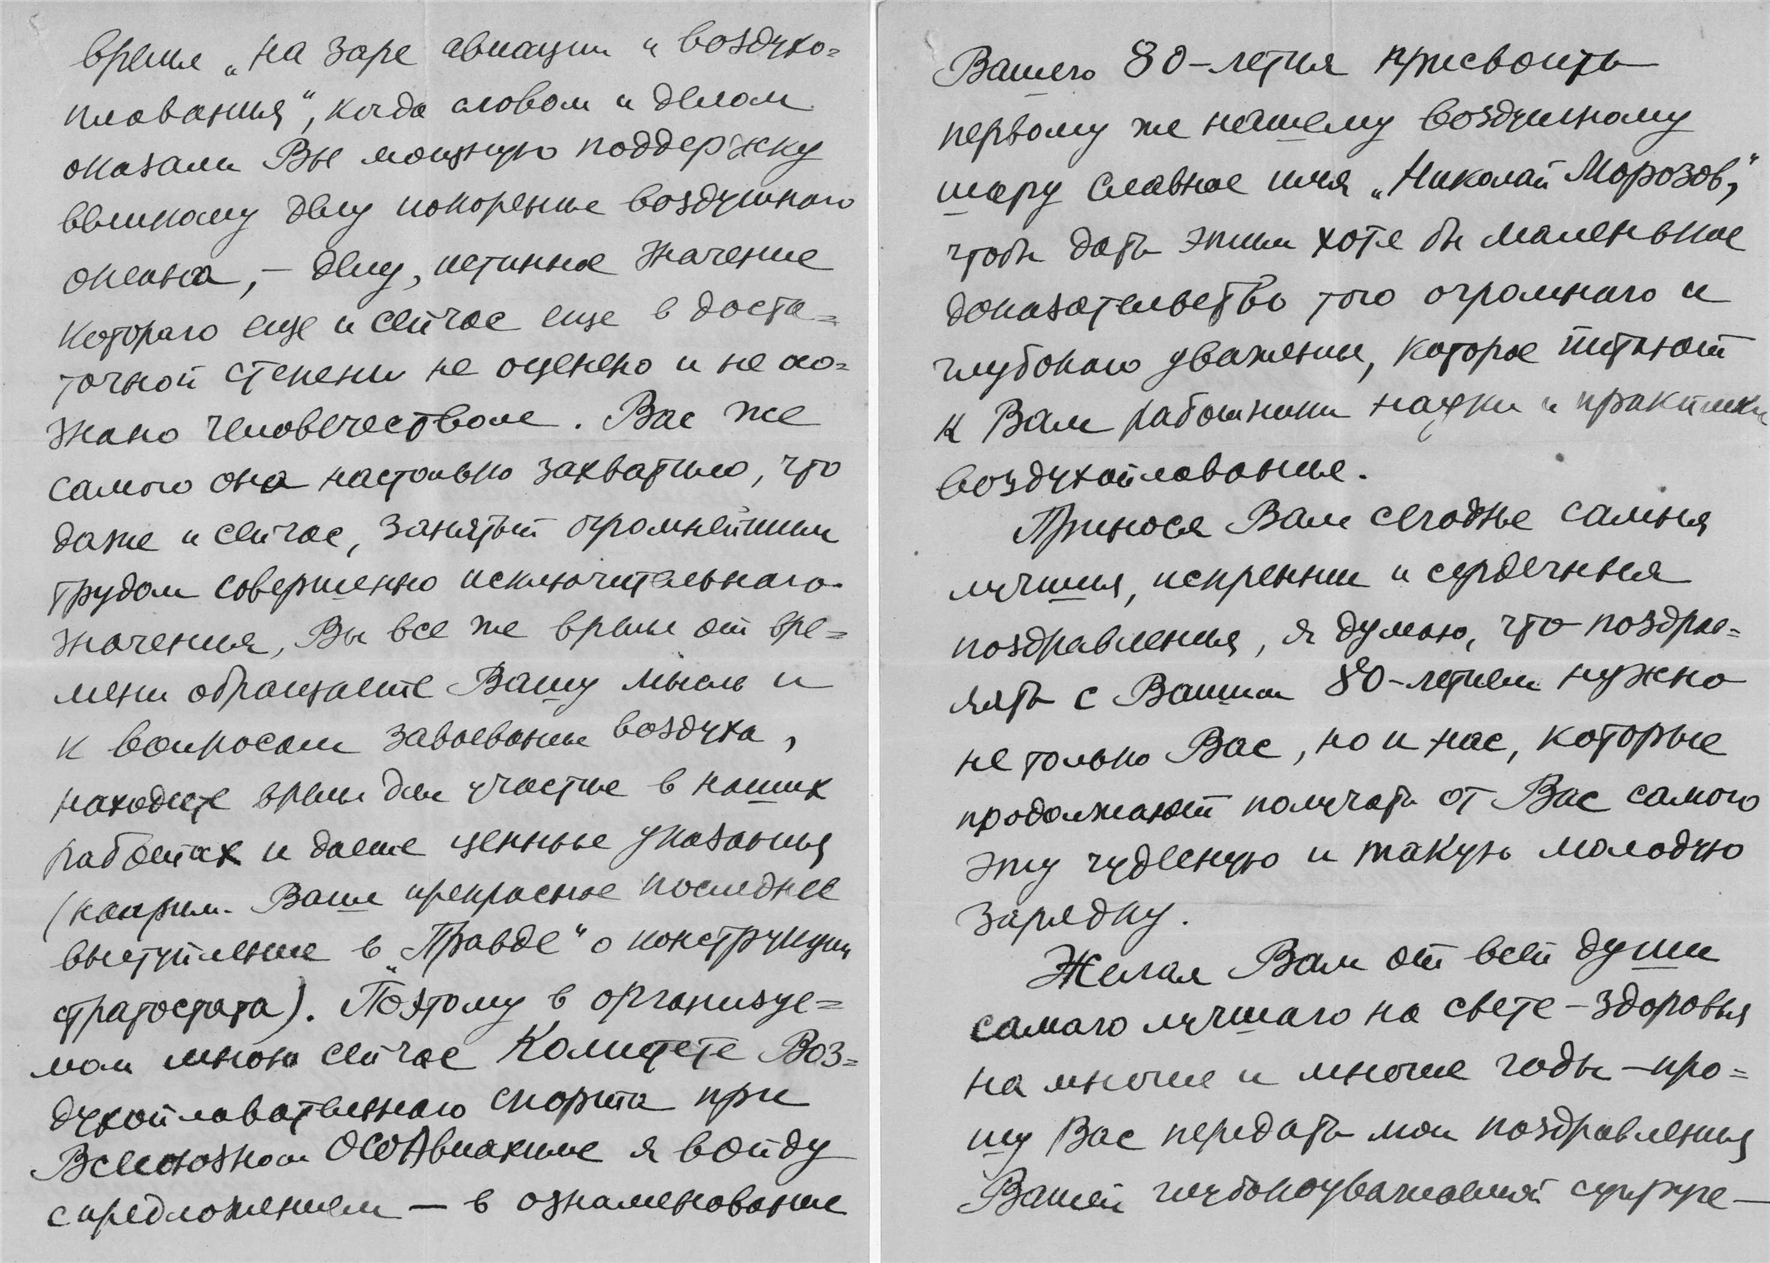 время „на заре авиации и воздухо=
плавания“, когда словом и делом
оказали Вы мощную поддержку
великому делу покорения воздушного
океана, – делу, истинное значение
котораго еще и сейчас еще в доста=
точной степени не оценено и не осо=
знано человечеством. Вас же
самого оно настолько захватило, что
даже и сейчас, занятый огромнейшим
трудом совершенно исключительнаго
значения, Вы все же время от вре=
мени обращаете Вашу мысль и
к вопросам завоевания воздуха,
находите время для участия в наших
работах и даете ценные указания
(наприм. Ваше прекрасное последнее
выступление в „Правде“ о конструкции
стратостата). Поэтому в организуе=
мом мною сейчас Комитете Воз=
духоплавательнаго спорта при
Всесоюзном ОСОАвиахиме я войду
с предложением – в ознаменование
Вашего 80-летия присвоить
первому же нашему воздушному
шару славное имя „Николай Морозов“,
чтобы дать этим хотя бы маленькое
доказательство того огромнаго и
глубокаго уважения, которое питают
к Вам работники науки и практики
воздухоплавания.
Принося Вам сегодня самыя
лучшия, искренния и сердечныя
поздравления, я думаю, что поздрав=
лять с Вашим 80-летием нужно
не только Вас, но и нас, которые
продолжают получать от Вас самого
эту чудесную и такую молодую
зарядку.
Желая Вам от всей души
самаго лучшаго на свете – здоровья
на многие и многие годы – про=
шу Вас передать мои поздравления
Вашей глубокоуважаемой супруге –